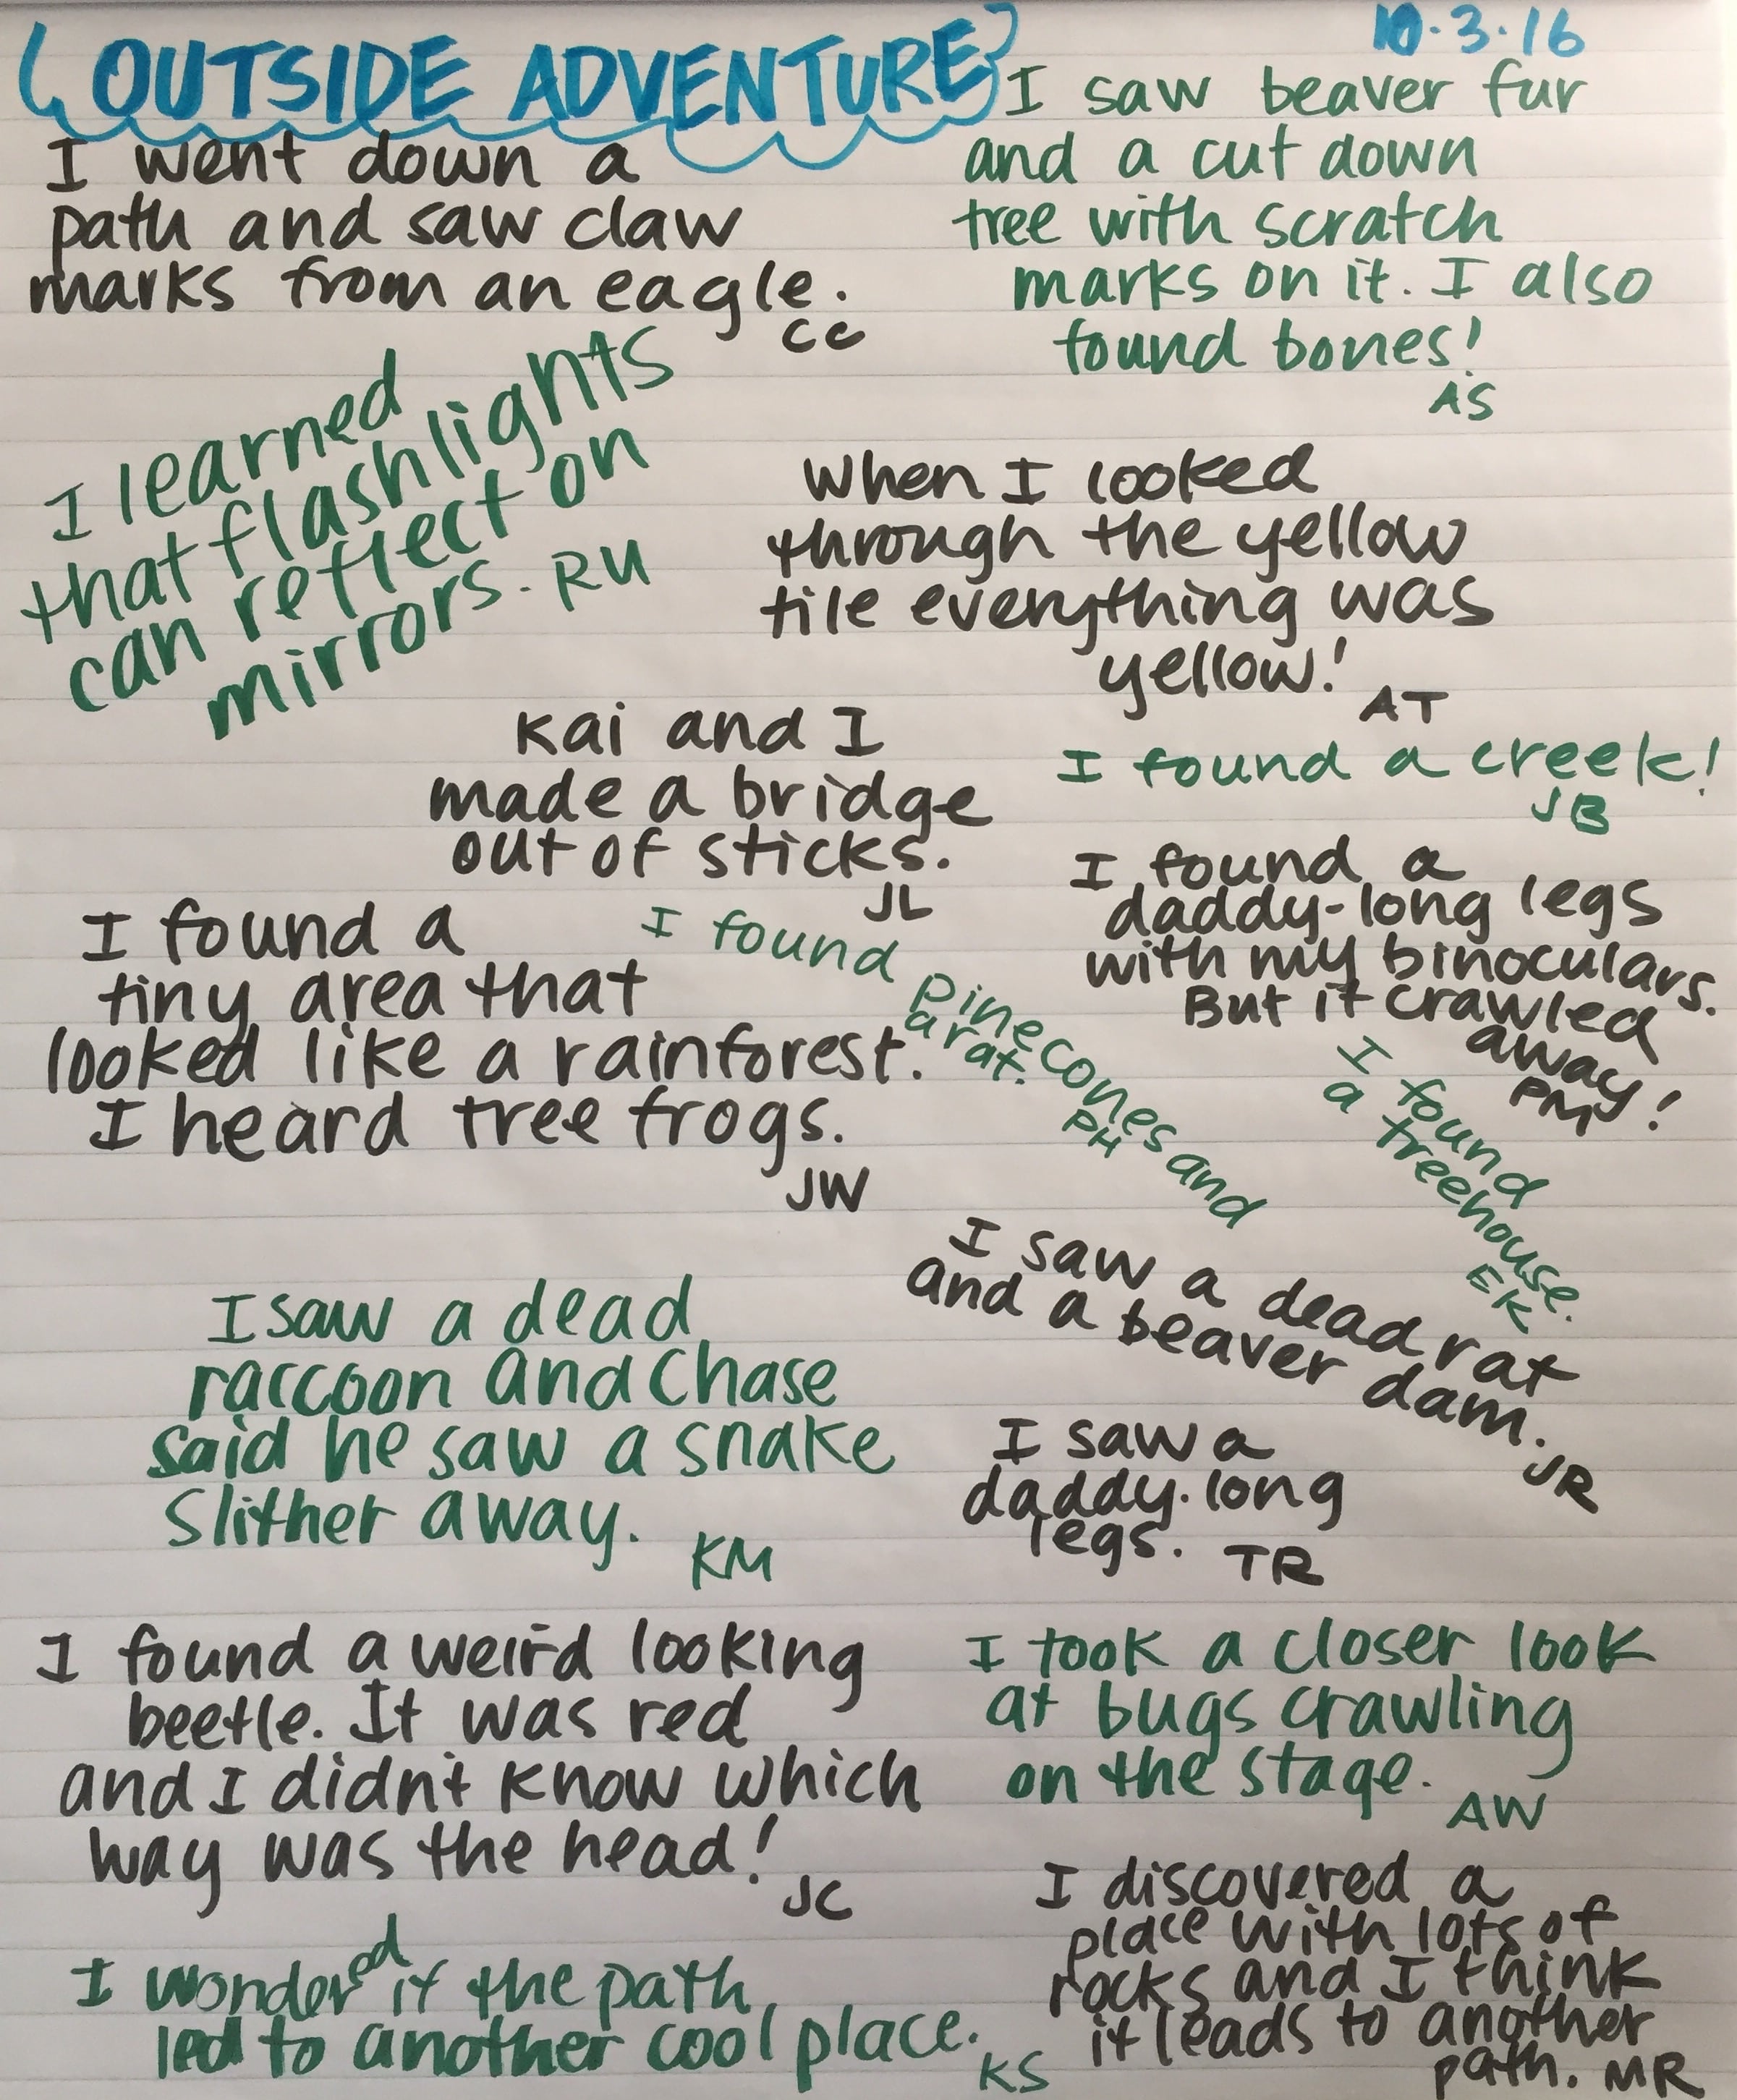 OUTSIDE ADVENTURE
10.3.16
I went down a
path and saw claw
marks from an eagle.
CC
I saw beaver fur
and a cut down
tree with scratch
marks on it. I also
found bones!
AS
I learned
that flashlights
can reflect on
mirrors. RU
When I looked
through the yellow
tile everything was
yellow!
AT
Kai and I
made a bridge
out of sticks.
JL
I found a creek!
JB
I found a
daddy-long legs
with my binoculars.
But it crawled
away!
PM
I found a
tiny area that
looked like a rainforest.
I heard tree frogs.
JW
I found pinecones and
a rat.
PH
I found
a treehouse.
EK
I saw a dead rat
and a beaver dam.
JR
I saw a dead
raccoon and Chase
said he saw a snake
slither away.
KM
I saw a
daddy-long
legs. TR
I found a weird looking
beetle. It was red
and I didn't know which
way was the head!
JC
I took a closer look
at bugs crawling
on the stage.
AW
I wondered if the path
led to another cool place.
KS
I discovered a
place with lots of
rocks and I think
it leads to another
path. MR